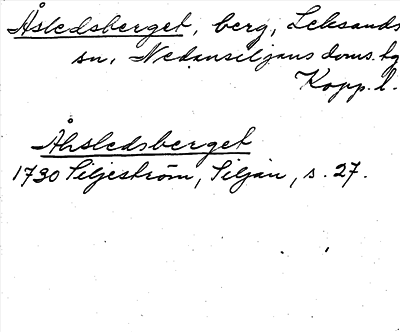 Åsledsberget, berg, Leksands
sn, Nedansiljans doms. hg
Kopp. l.
Åhsledsberget
1730 Siljeström, Siljan, s. 27.